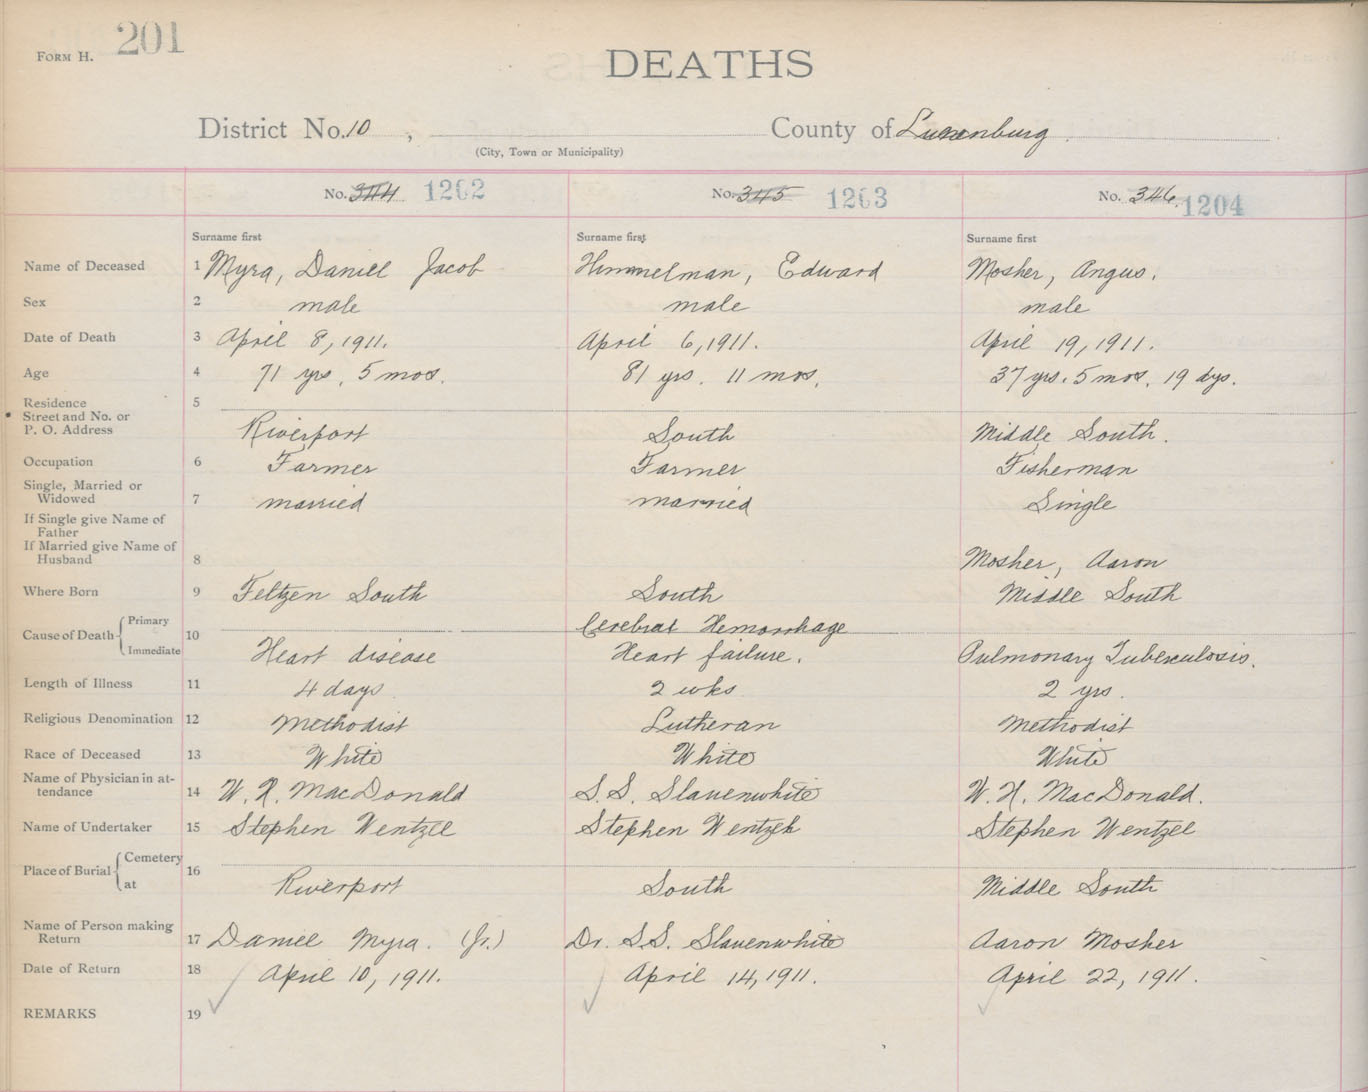 FORM H. 201
DEATHS
District No. 10 , County of Lunenburg
(City, Town or Municipality)
No. 344 1202 No. 345 1203 No. 346. 1204
Surname first Surname first Surname first
Name of Deceased 1 Myra, Daniel Jacob Himmelman, Edward Mosher, Angus.
Sex 2 male male male
Date of Death 3 April 8, 1911. April 6, 1911. April 19, 1911.
Age 4 71 yrs. 5 mos. 81 yrs. 11 mos. 37 yrs. 5 mos. 19 dys.
Residence 5
Street and No. or
P. O. Address Riverport South Middle South.
Occupation 6 Farmer Farmer Fisherman
Single, Married or
Widowed 7 married married Single
If Single give Name of
Father
If Married give Name of
Husband 8 Mosher, Aaron
Where Born 9 Feltzen South South Middle South
Primary Cerebral Hemorrhage
Cause of Death 10
Immediate Heart disease Heart failure. Pulmonary Tuberculosis.
Length of Illness 11 4 days 2 wks 2 yrs.
Religious Denomination 12 Methodist Lutheran Methodist
Race of Deceased 13 White White White
Name of Physician in at-
tendance 14 W. H. MacDonald S.S. Slauenwhite W. H. MacDonald.
Name of Undertaker 15 Stephen Wentzel Stephen Wentzel Stephen Wentzel
Cemetery
Place of Burial 16
at Riverport South Middle South
Name of Person making
Return 17 Daniel Myra. (Jr.) Dr. S.S. Slauenwhite Aaron Mosher
Date of Return 18 April 10, 1911. April 14, 1911. April 22, 1911.
REMARKS 19